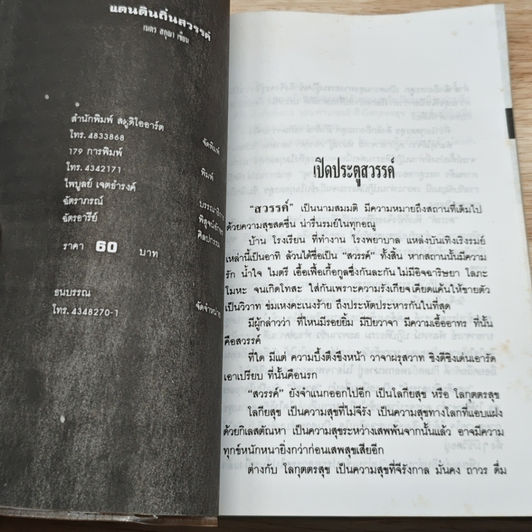 แดนดินถิ่นสวรรค์
เนตร สกุณา เขียน
สำนักพิมพ์ สตูดิโออาร์ต
โทร. 4833868
จัดพิมพ์
179 การพิมพ์
โทร. 4342171
พิมพ์
ไพบูลย์ เจตธำรงค์
ฉัตราภรณ์
ฉัตรอารีย์
ศิลปกรรม
ราคา 60 บาท
ธนบรรณ
โทร. 4348270-1
จัดจำหน่าย
เปิดประตูสวรรค์
“สวรรค์” เป็นนามสมมติ มีความหมายถึงสถานที่เต็มไป
ด้วยความสุขสดชื่น น่ารื่นรมย์ในทุกอณู
บ้าน โรงเรียน ที่ทำงาน โรงพยาบาล แหล่งบันเทิงเริงรมย์
เหล่านี้เป็นอาทิ ล้วนได้ชื่อเป็น “สวรรค์” ทั้งสิ้น หากสถานนั้นมีความ
รัก น้ำใจ ไมตรี เอื้อเฟื้อเกื้อกูลซึ่งกันละกัน ไม่มีอิจฉาริษยา โลภะ
โมหะ จนเกิดโทสะ ใส่กันเพราะความรังเกียจ เคียดแค้นให้ขายตัว
เป็นวิวาท ข่มเหงคะเนงร้าย ถึงประหัตประหารกันในที่สุด
มีผู้กล่าวว่า ที่ไหนมีรอยยิ้ม มีปิยวาจา มีความเอื้ออาทร ที่นั้น
คือสวรรค์
ที่ใด มีแต่ ความบึ้งตึงขึงหน้า วาจาผรุสวาท ชิงดีชิงเด่นเอารัด
เอาเปรียบ ที่นั้นคือนรก
“สวรรค์” ยังจำแนกออกไปอีก เป็นโลกียสุข หรือ โลกุตตรสุข
โลกียสุข เป็นความสุขที่ไม่จีรัง เป็นความสุขทางโลกที่แอบแฝง
ด้วยกิเลสตัณหา เป็นความสุขระหว่างเสพพ้นจากนั้นแล้ว อาจมีความ
ทุกข์หนักหนายิ่งกว่าก่อนเสพสุขเสียอีก
ต่างกับ โลกุตตรสุข เป็นความสุขที่จีรังกาล มั่นคง ถาวร ดื่ม